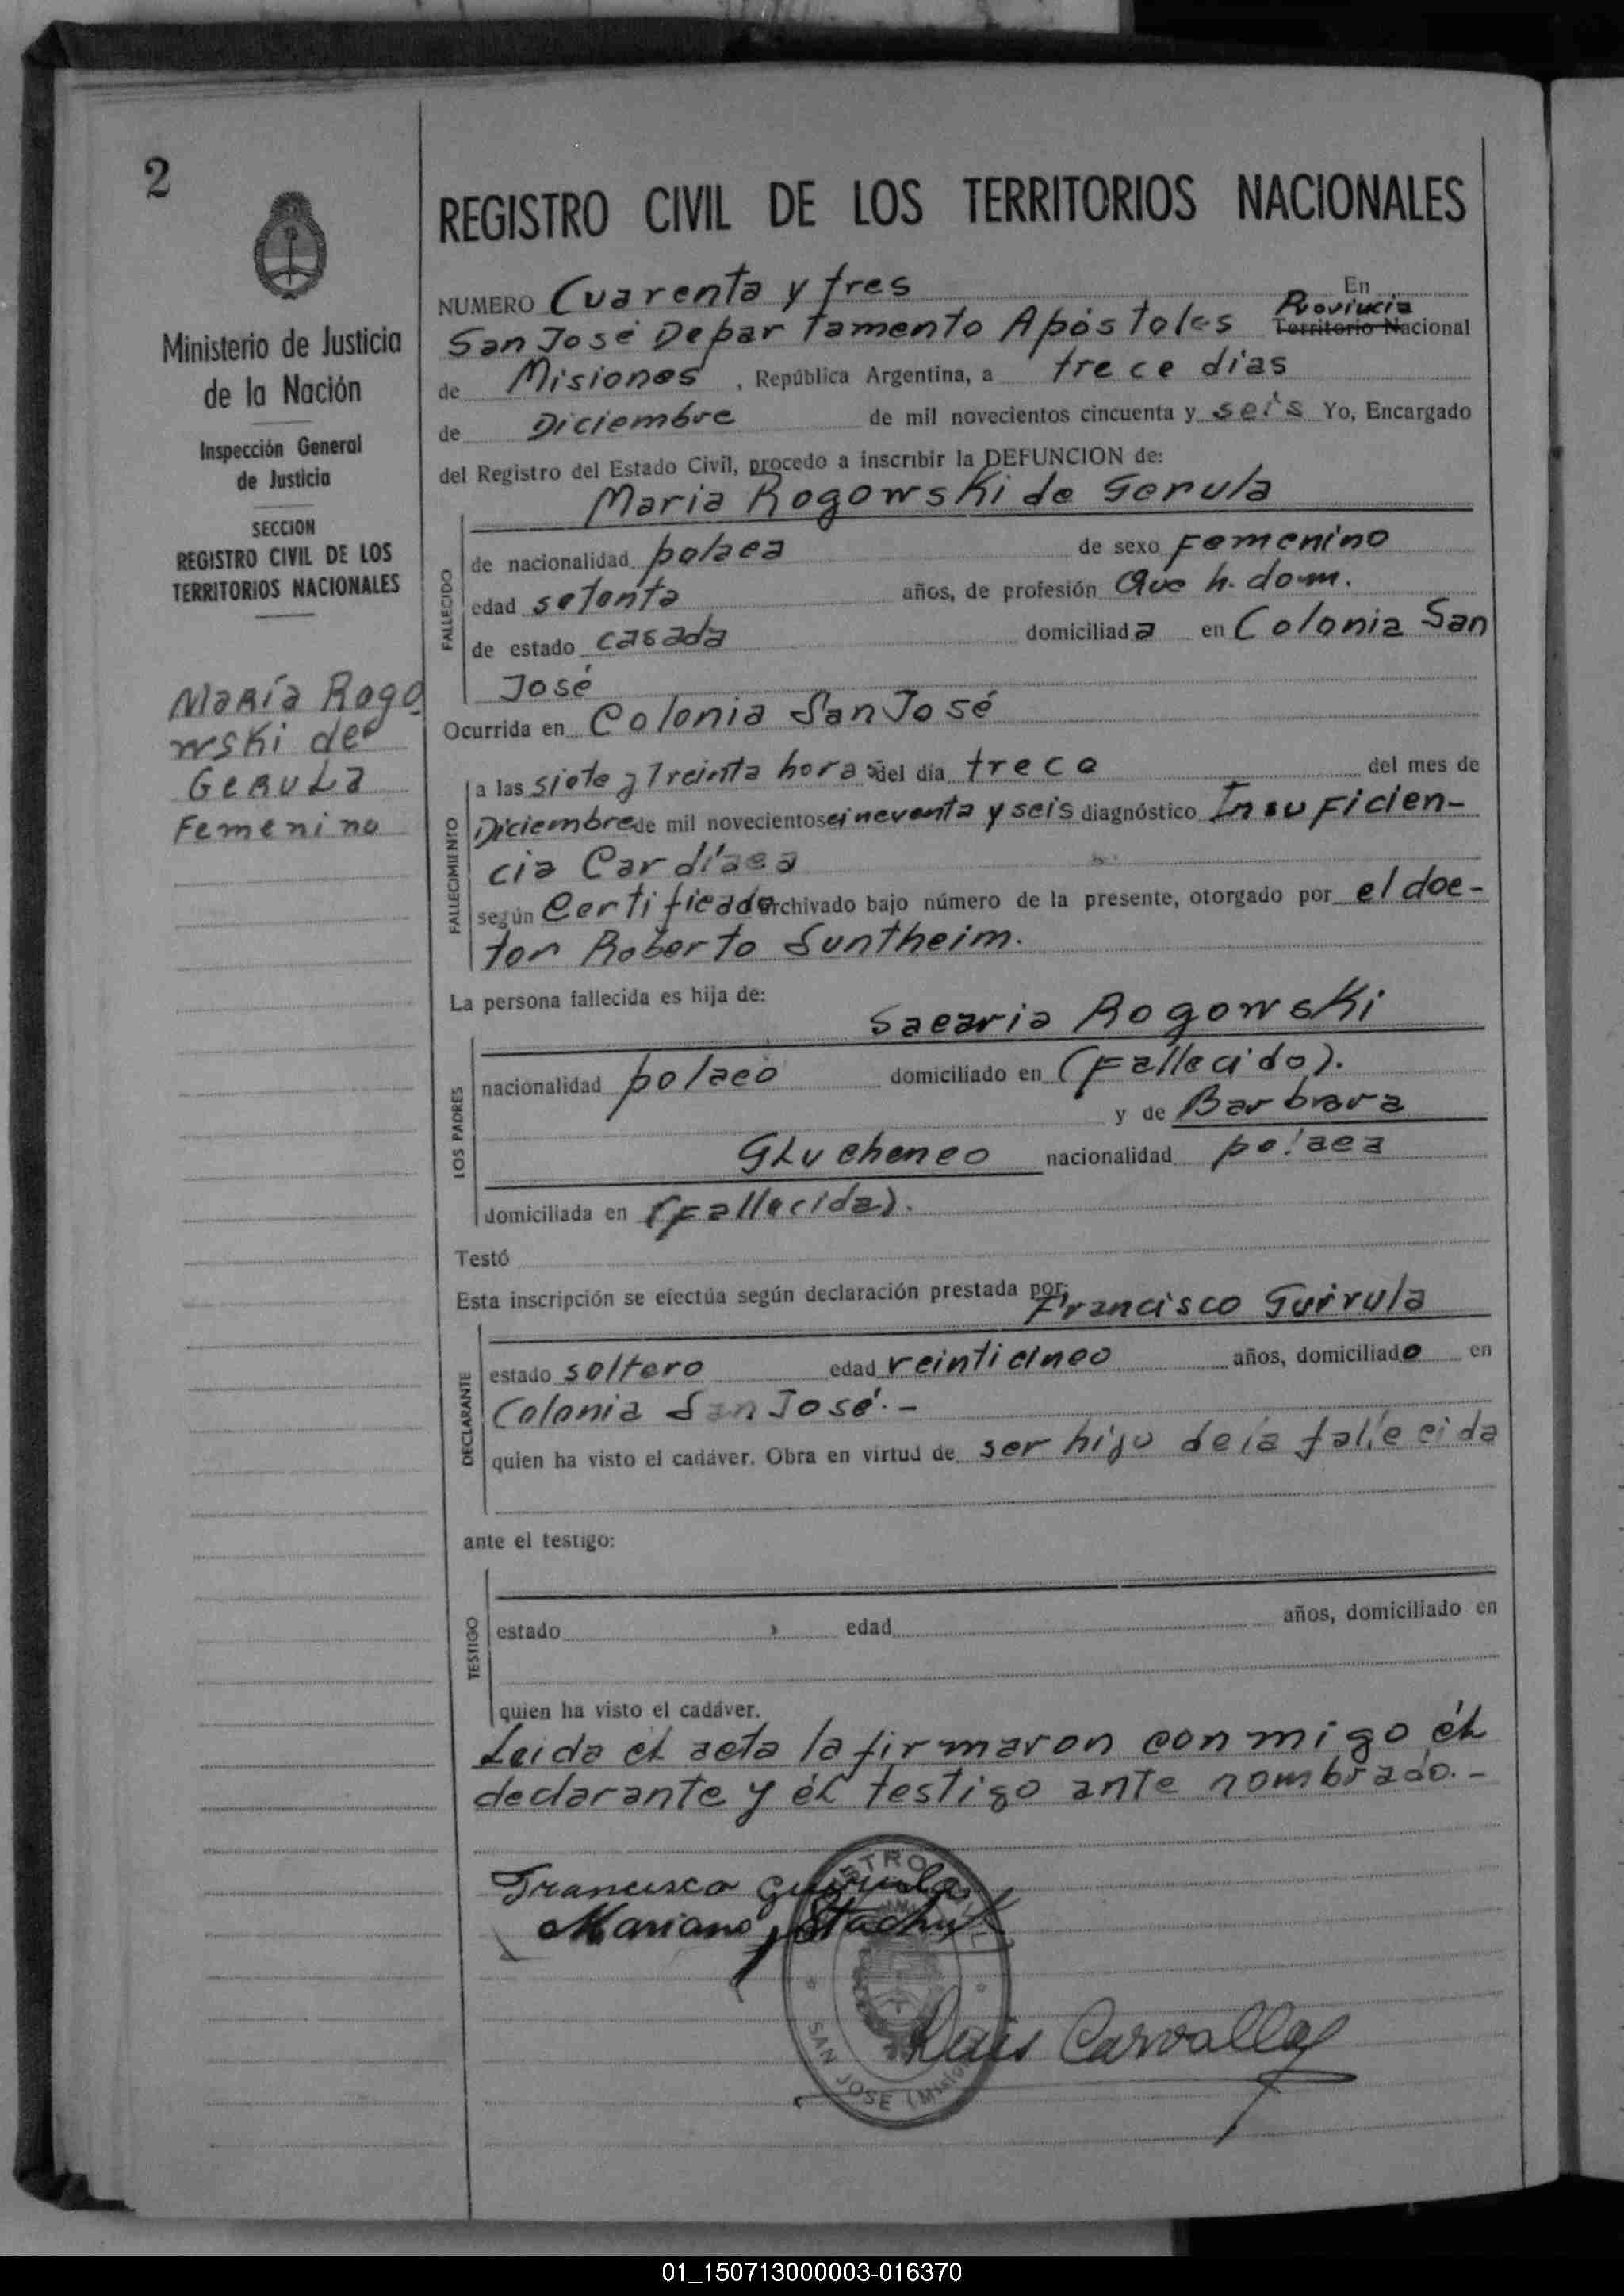 2
REGISTRO CIVIL DE LOS TERRITORIOS NACIONALES
Ministerio de Justicia
de la Nación
Inspección General
de Justicia
SECCION
REGISTRO CIVIL DE LOS
TERRITORIOS NACIONALES
María Rogo
wski de
Gerula
Femenino
NUMERO Cuarenta y tres En
San José Departamento Apóstoles Provincia Territorio Nacional
de Misiones, República Argentina, a trece dias
de Diciembre de mil novecientos cincuenta y seis Yo, Encargado
del Registro del Estado Civil, procedo a inscribir la DEFUNCION de:
Maria Rogowski de Gerula
FALLECIDO
de nacionalidad polaca de sexo Femenino
edad setenta años, de profesión Que h. dom.
de estado casada domiciliada en Colonia San
José
Ocurrida en Colonia San José
FALLECIMIENTO
a las siete y treinta horas del día trece del mes de
Diciembre de mil novecientos cincuenta y seis diagnóstico Insuficien-
cia Cardíaca
según Certificado archivado bajo número de la presente, otorgado por el doc-
tor Roberto Suntheim.
La persona fallecida es hija de:
Sacaria Rogowski
LOS PADRES
nacionalidad polaco domiciliado en (Fallecido).
y de Barbrara
Glucheneo nacionalidad polaca
domiciliada en (Fallecida).
Testó
Esta inscripción se efectúa según declaración prestada por:
Francisco Guirula
DECLARANTE
estado soltero edad veinticinco años, domiciliado en
Colonia San José.-
quien ha visto el cadáver. Obra en virtud de ser hijo de la fallecida
ante el testigo:
TESTIGO
estado edad años, domiciliado en
quien ha visto el cadáver.
Leida el acta la firmaron conmigo él
declarante y él testigo ante nombrado.-
Francisco Guirula
Mariano
SAN JOSE (Misiones
Luis Carvallo
01_150713000003-016370